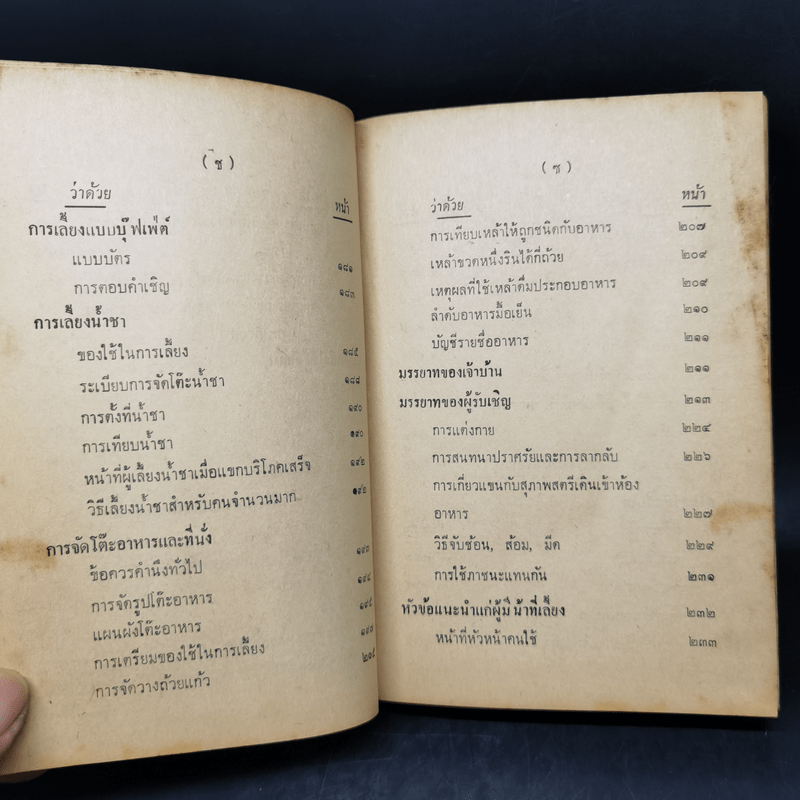 ( ช )
ว่าด้วย หน้า
การเลี้ยงแบบบุ๊ฟเฟ่ต์
แบบบัตร ๑๘๑
การตอบคำเชิญ ๑๘๓
การเลี้ยงน้ำชา
ของใช้ในการเลี้ยง ๑๘๕
ระเบียบการจัดโต๊ะน้ำชา ๑๘๘
การตั้งที่น้ำชา ๑๙๐
การเทียบน้ำชา ๑๙๐
หน้าที่ผู้เลี้ยงน้ำชาเมื่อแขกบริโภคเสร็จ ๑๙๒
วิธีเลี้ยงน้ำชาสำหรับคนจำนวนมาก ๑๙๒
การจัดโต๊ะอาหารและที่นั่ง
ข้อควรคำนึงทั่วไป ๑๙๓
การจัดรูปโต๊ะอาหาร ๑๙๔
แผนผังโต๊ะอาหาร ๑๙๕
การเตรียมของใช้ในการเลี้ยง ๑๙๘
การจัดวางถ้วยแก้ว ๒๐๕
( ซ )
ว่าด้วย หน้า
การเทียบเหล้าให้ถูกชนิดกับอาหาร ๒๐๗
เหล้าขวดหนึ่งรินได้กี่ถ้วย ๒๐๙
เหตุผลที่ใช้เหล้าดื่มประกอบอาหาร ๒๐๙
ลำดับอาหารมื้อเย็น ๒๑๐
บัญชีรายชื่ออาหาร ๒๑๑
มรรยาทของเจ้าบ้าน ๒๑๑
มรรยาทของผู้รับเชิญ ๒๑๓
การแต่งกาย ๒๒๔
การสนทนาปราศรัยและการลากลับ ๒๒๖
การเกี่ยวแขนกับสุภาพสตรีเดินเข้าห้อง
อาหาร ๒๒๗
วิธีจับช้อน, ส้อม, มีด ๒๒๙
การใช้ภาชนะแทนกัน ๒๓๑
หัวข้อแนะนำแก่ผู้มีหน้าที่เลี้ยง ๒๓๒
หน้าที่หัวหน้าคนใช้ ๒๓๓